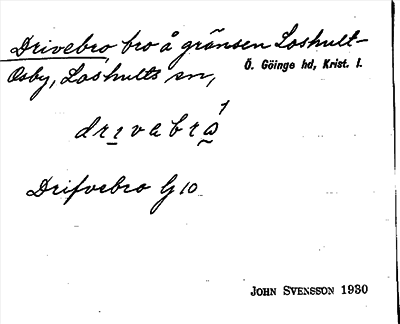 Drivebro, bro å gränsen Loshult-
Osby, Loshults sn, Ö. Göinge hd, Krist. l.
drɪvabrꜵ1
Drifvebro G 10
JOHN SVENSSON 1930